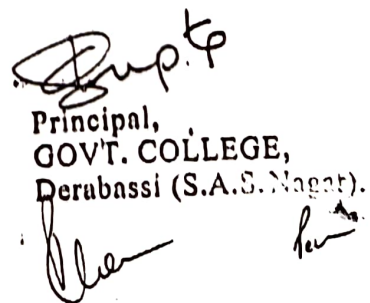 Gupta
Principal,
GOV'T. COLLEGE,
Derabassi (S.A.S. Nagar).